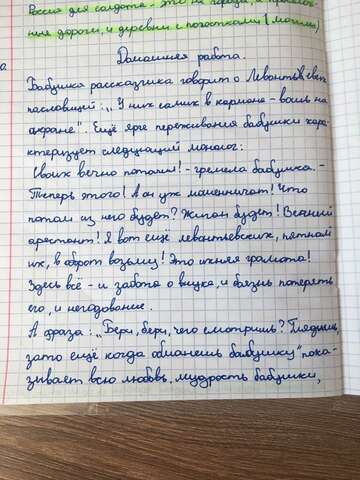 Россия для солдата - это не города, а просёлоч-
ные дороги, и деревни с погостами (могилы)
Домашняя работа.
Бабушка рассказчика говорит о Левонтьевых
пословицей: „У них самих в кармане - вошь на
аркане". Ещё ярче переживания бабушки хара-
ктеризует следующий монолог:
Своих вечно потаем! - гремела бабушка. -
Теперь этого! А он уж мошенничат! Что
потом из него будет? Жиган будет! Вечный
арестант! Я вот ещё левонтьевских, пятнай
их, в оборот возьму! Это ихняя грамота!
Здесь всё - и забота о внуке, и боязнь потерять
его, и негодование.
А фраза: „Бери, бери, чего смотришь? Глядишь,
зато ещё когда обманешь бабушку" пока-
зывает всю любовь, мудрость бабушки,